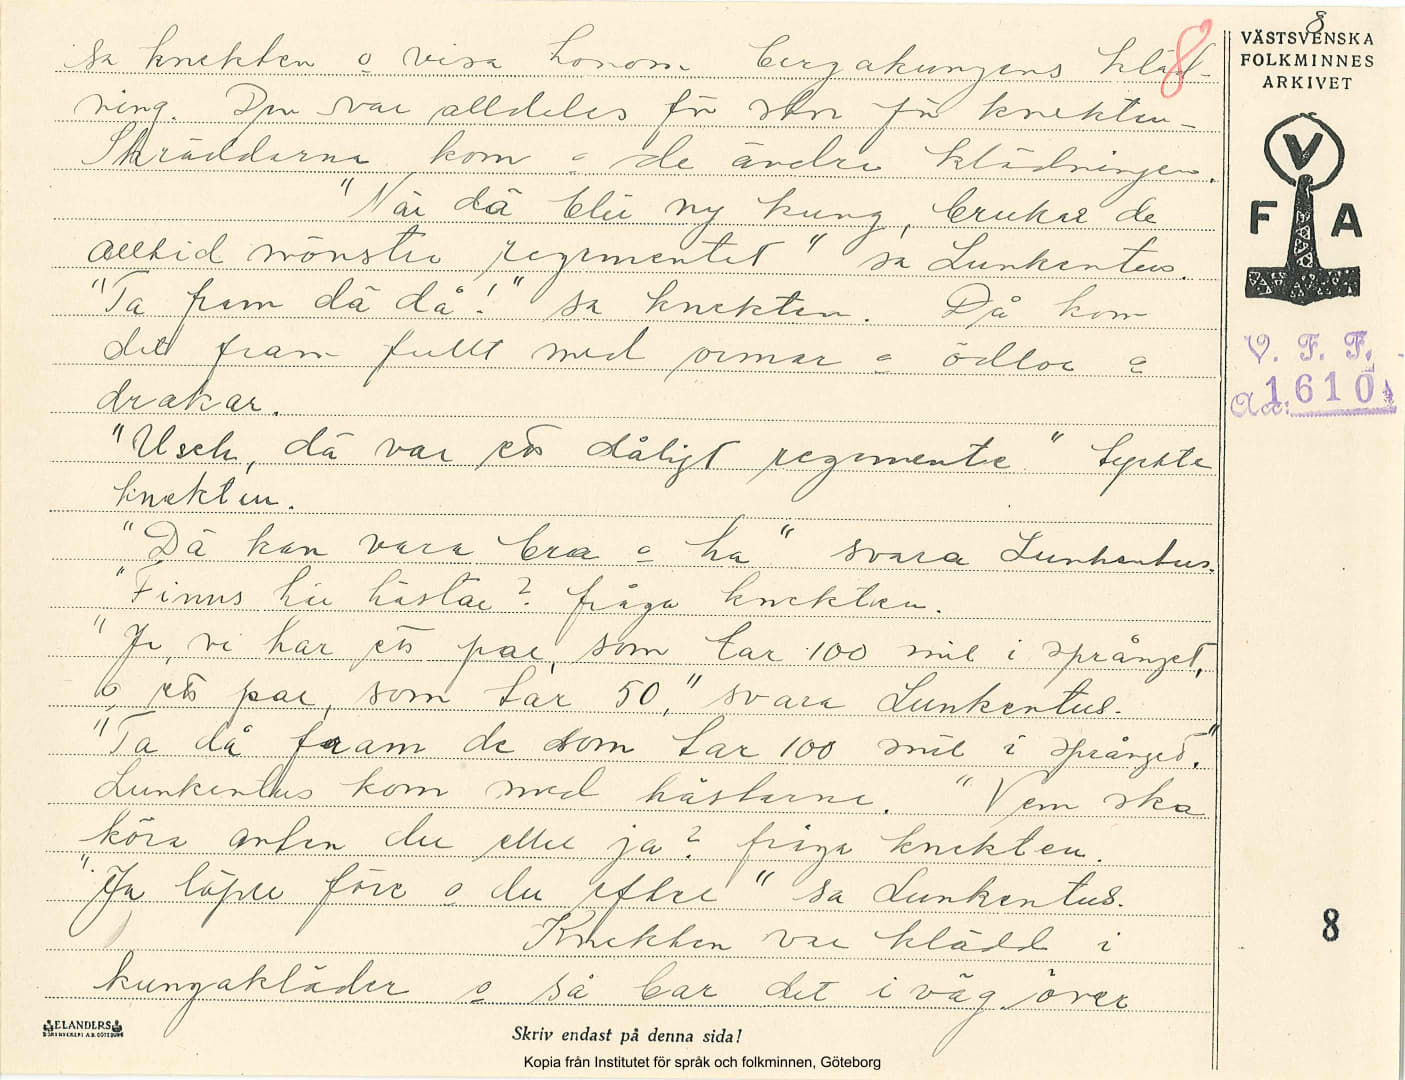 8
8
VÄSTSVENSKA
FOLKMINNES
ARKIVET
V
F A
V. F. F.
Acc: 1610
sa knekten o visa honom bergakungens kläd-
ning. Den var alldeles för stor för knekten-
Skräddarna kom o de ändra klädningen.
"När dä blir ny kung, brukar de
alltid mönstra regementet" sa Lunkentus.
"Ta fram dä då!" sa knekten. Då kom
det fram fullt med ormar o ödlor o
drakar.
"Usch, dä var ett dåligt regemente" tyckte
knekten.
"Dä kan vara bra o ha" svara Lunkentus.
"Finns här hästar? fråga knekten.
"Ja, vi har ett par, som tar 100 mil i språnget,
o ett par, som tar 50," svara Lunkentus.
"Ta då fram de som tar 100 mil i språnget."
Lunkentus kom med hästarna. "Vem ska
köra anten du eller ja? fråga knekten.
"Ja löper före o du efter" sa Lunkentus.
Knekten var klädd i
kungakläder o så bar det i väg över
8
ELANDERS
Skriv endast på denna sida!
Kopia från Institutet för språk och folkminnen, Göteborg